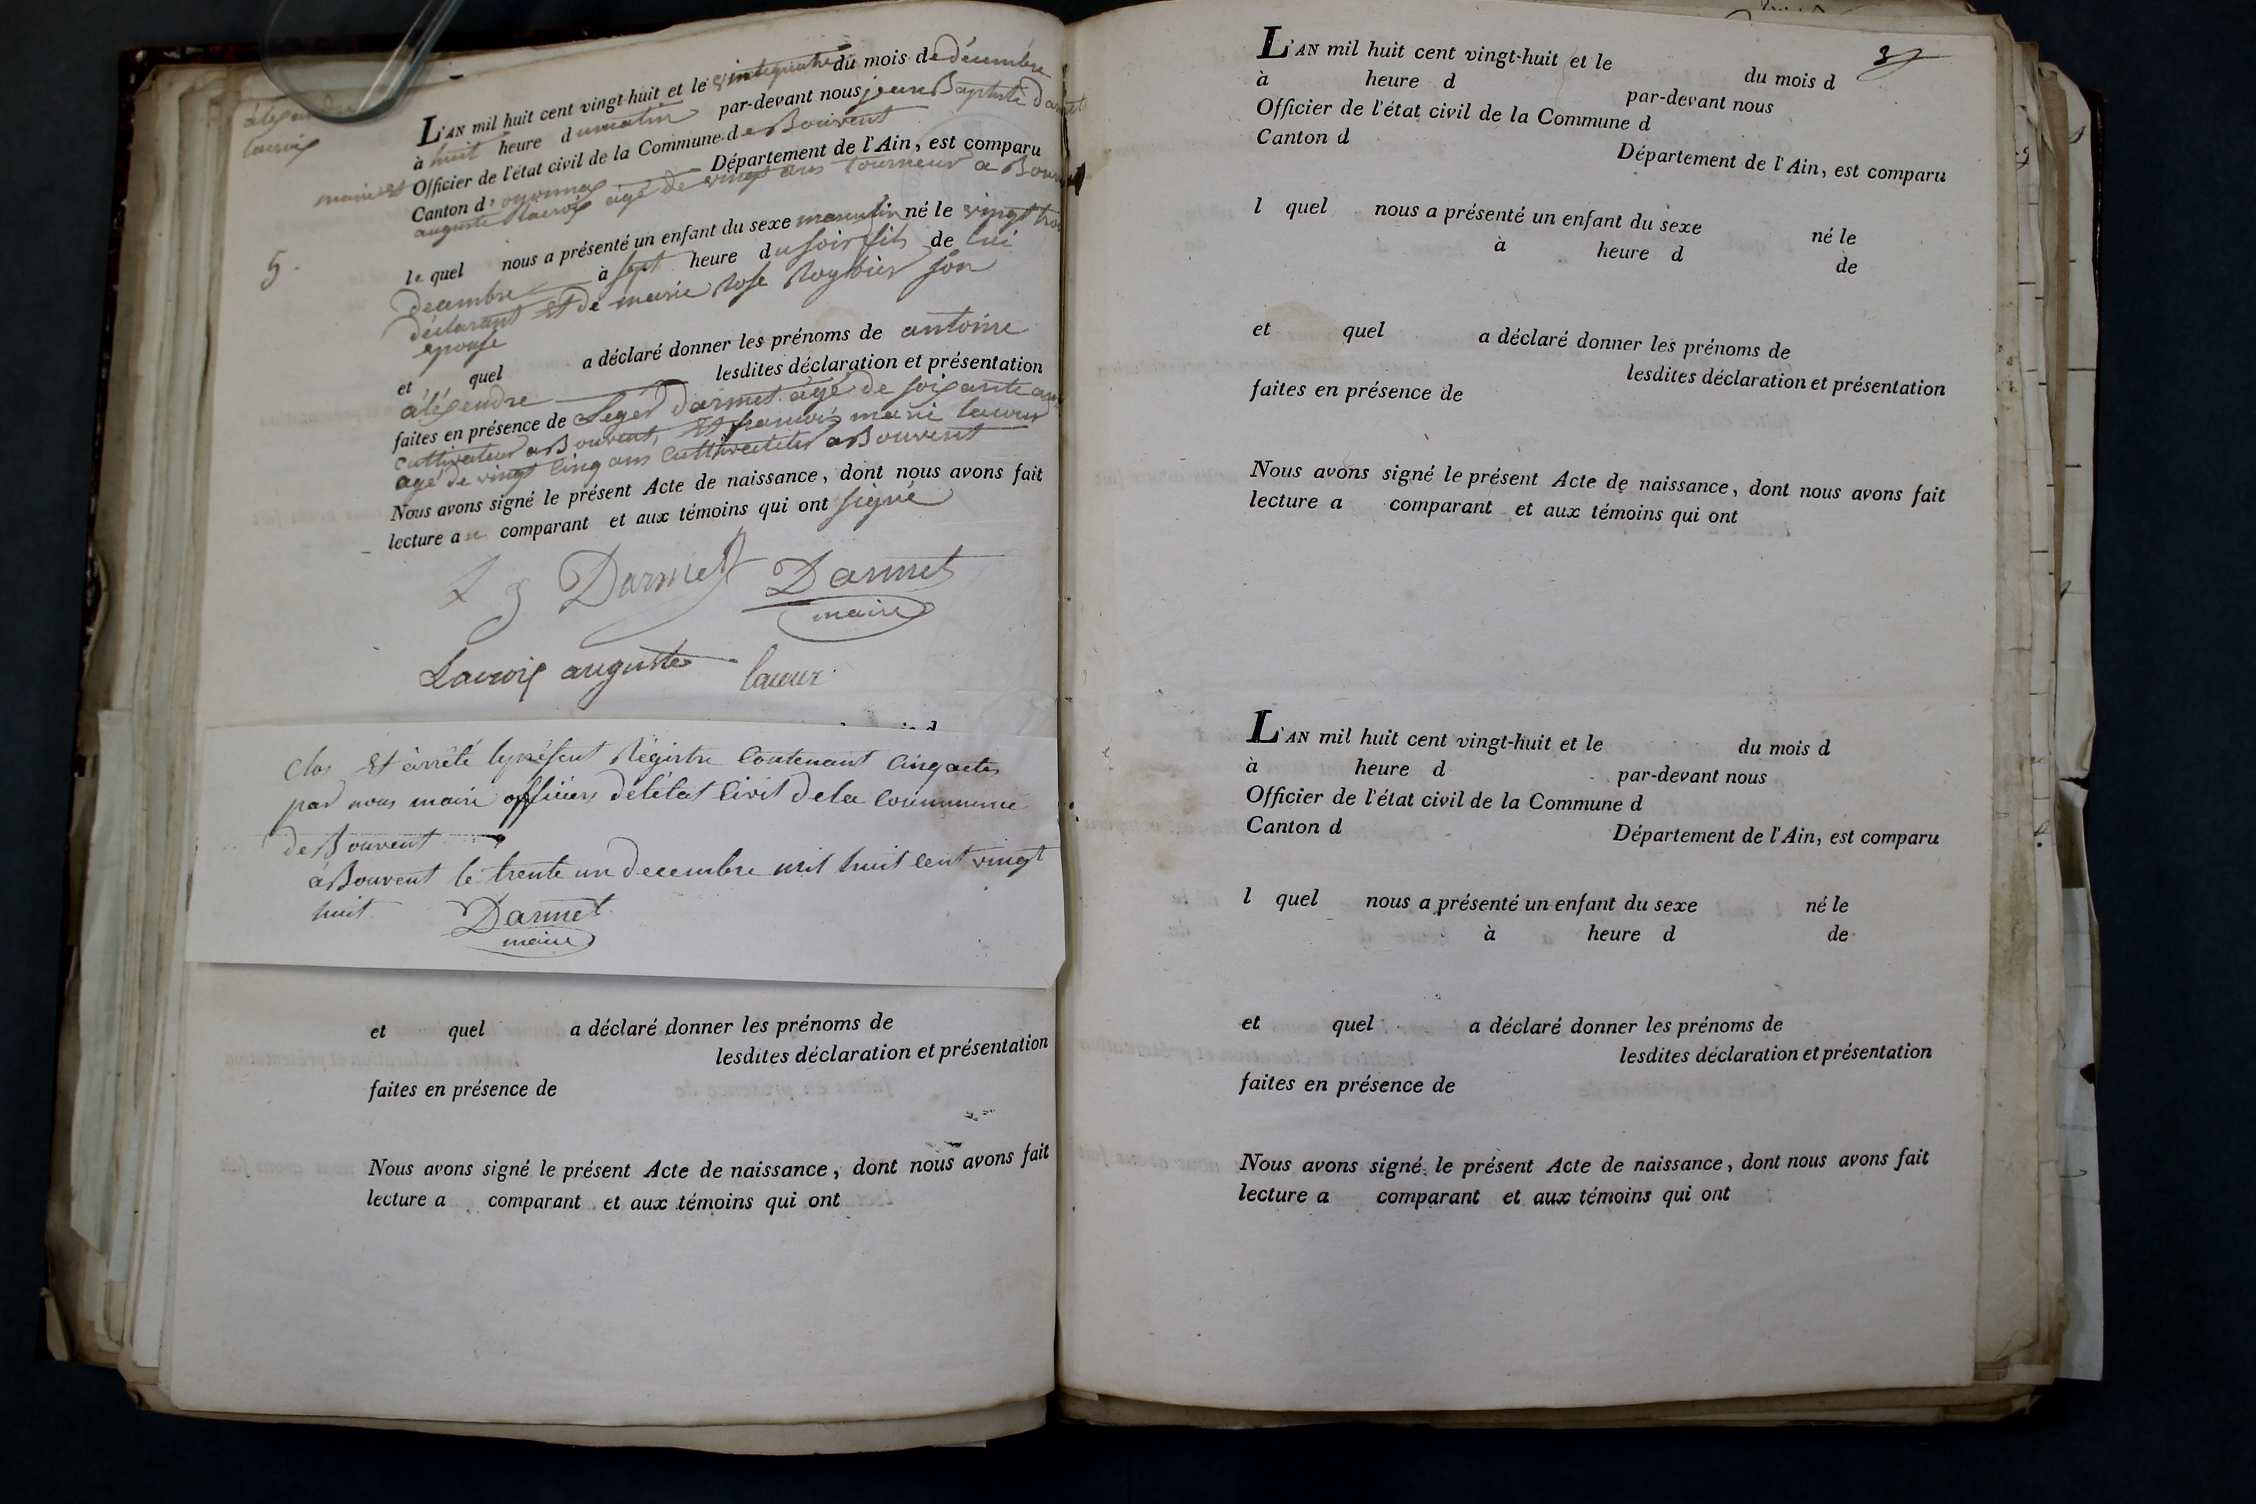 lacroix
L'AN mil huit cent vingt-huit et le vingtquatre du mois de décembre
à huit heure du matin par-devant nous jean Baptiste
maire et Officier de l'état civil de la Commune de Bouvent
Canton d'oyonnax Département de l'Ain, est comparu
auguste lacroix agé de vingt ans tourneur a
5.
le quel nous a présenté un enfant du sexe masculin né le vingt
decembre à sept heure du soir fils de lui
déclarant et de marie Rose Roybier son
epouse
et quel a déclaré donner les prénoms de antoine
aléxendre lesdites déclaration et présentation
faites en présence de Leger Darmet agé de soixante
cultivateur a Bouvent, et francois marie lacour
agé de vingt cinq ans cultivateur a Bouvent
Nous avons signé le présent Acte de naissance, dont nous avons fait
lecture au comparant et aux témoins qui ont signé
L g Darmet Darmet
maire
Lacroix auguste lacour
Clos et àrrêté le présent Régistre contenant cinq actes
par nous maire officiers de létat civil de la commune
de Bouvent
à Bouvent le trente un decembre mil huit cent vingt
huit Darmet
maire
et quel a déclaré donner les prénoms de
lesdites déclaration et présentation
faites en présence de
Nous avons signé le présent Acte de naissance, dont nous avons fait
lecture a comparant et aux témoins qui ont
3
L'AN mil huit cent vingt-huit et le du mois d
à heure d par-devant nous
Officier de l'état civil de la Commune d
Canton d Département de l'Ain, est comparu
l quel nous a présenté un enfant du sexe né le
à heure d de
et quel a déclaré donner les prénoms de
lesdites déclaration et présentation
faites en présence de
Nous avons signé le présent Acte de naissance, dont nous avons fait
lecture a comparant et aux témoins qui ont
L'AN mil huit cent vingt-huit et le du mois d
à heure d par-devant nous
Officier de l'état civil de la Commune d
Canton d Département de l'Ain, est comparu
l quel nous a présenté un enfant du sexe né le
à heure d de
et quel a déclaré donner les prénoms de
lesdites déclaration et présentation
faites en présence de
Nous avons signé le présent Acte de naissance, dont nous avons fait
lecture a comparant et aux témoins qui ont